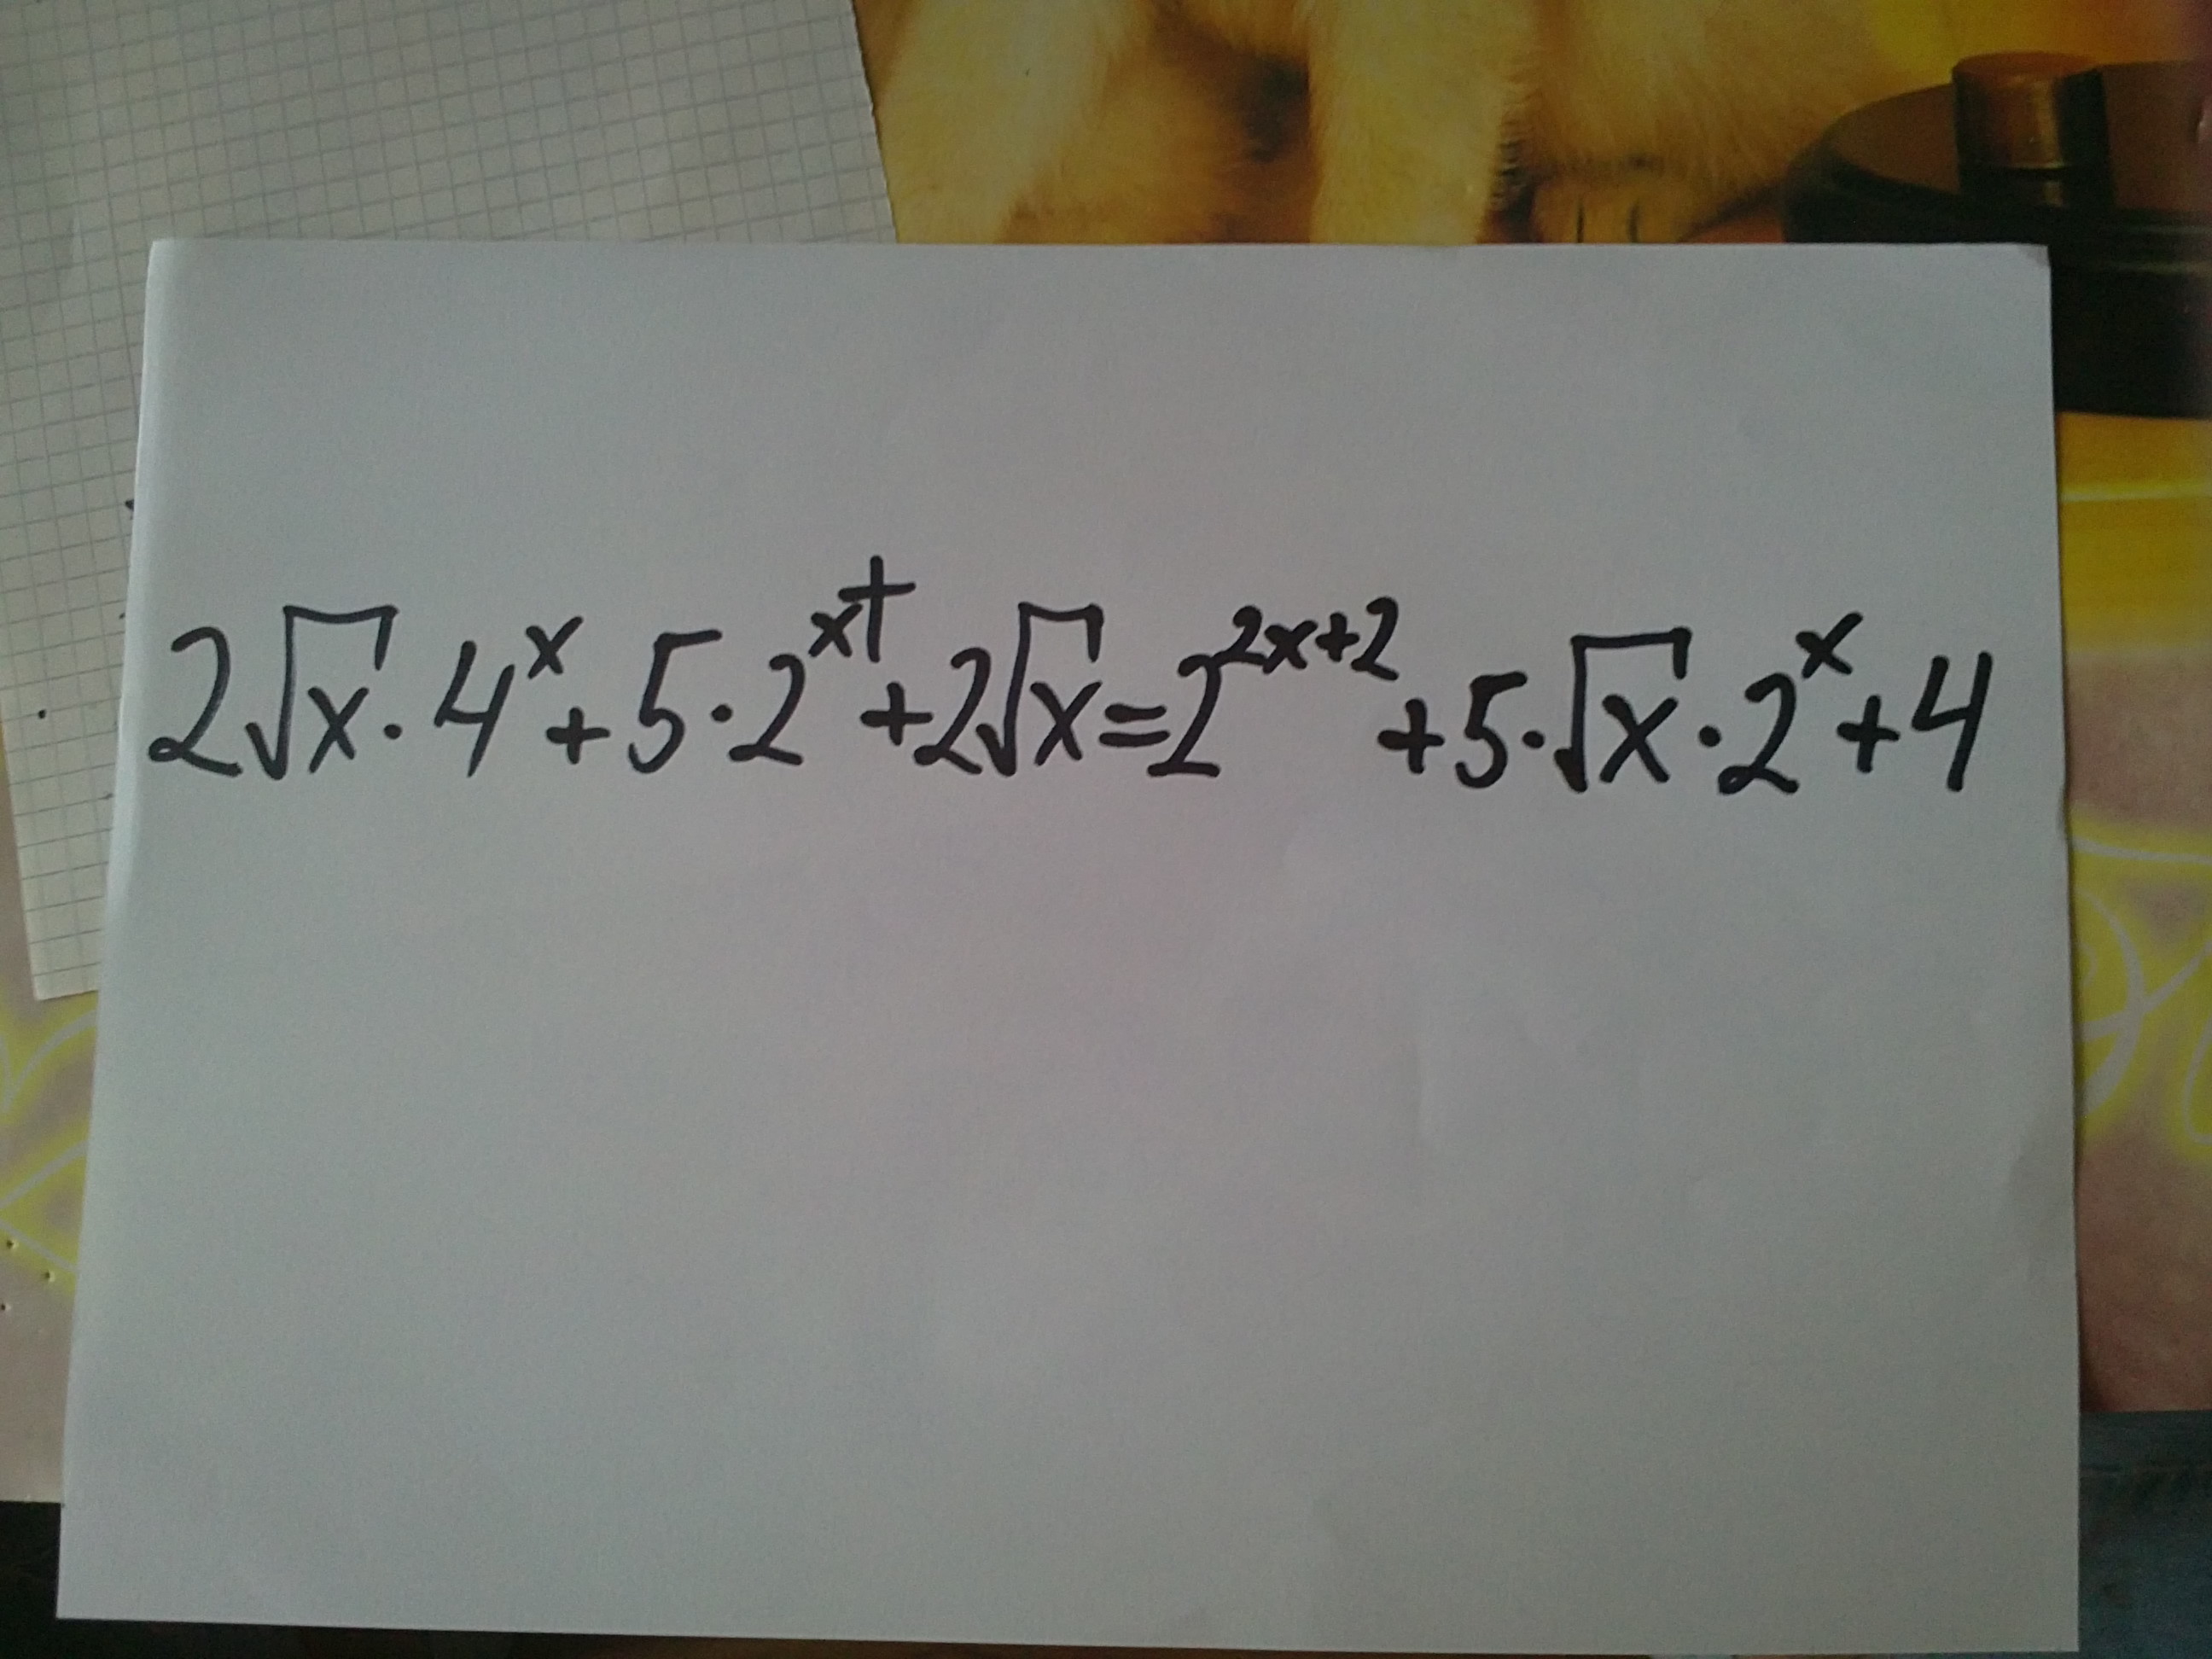 2√x · 4^x + 5 · 2^(x+1) + 2√x = 2^(2x+2) + 5 · √x · 2^x + 4